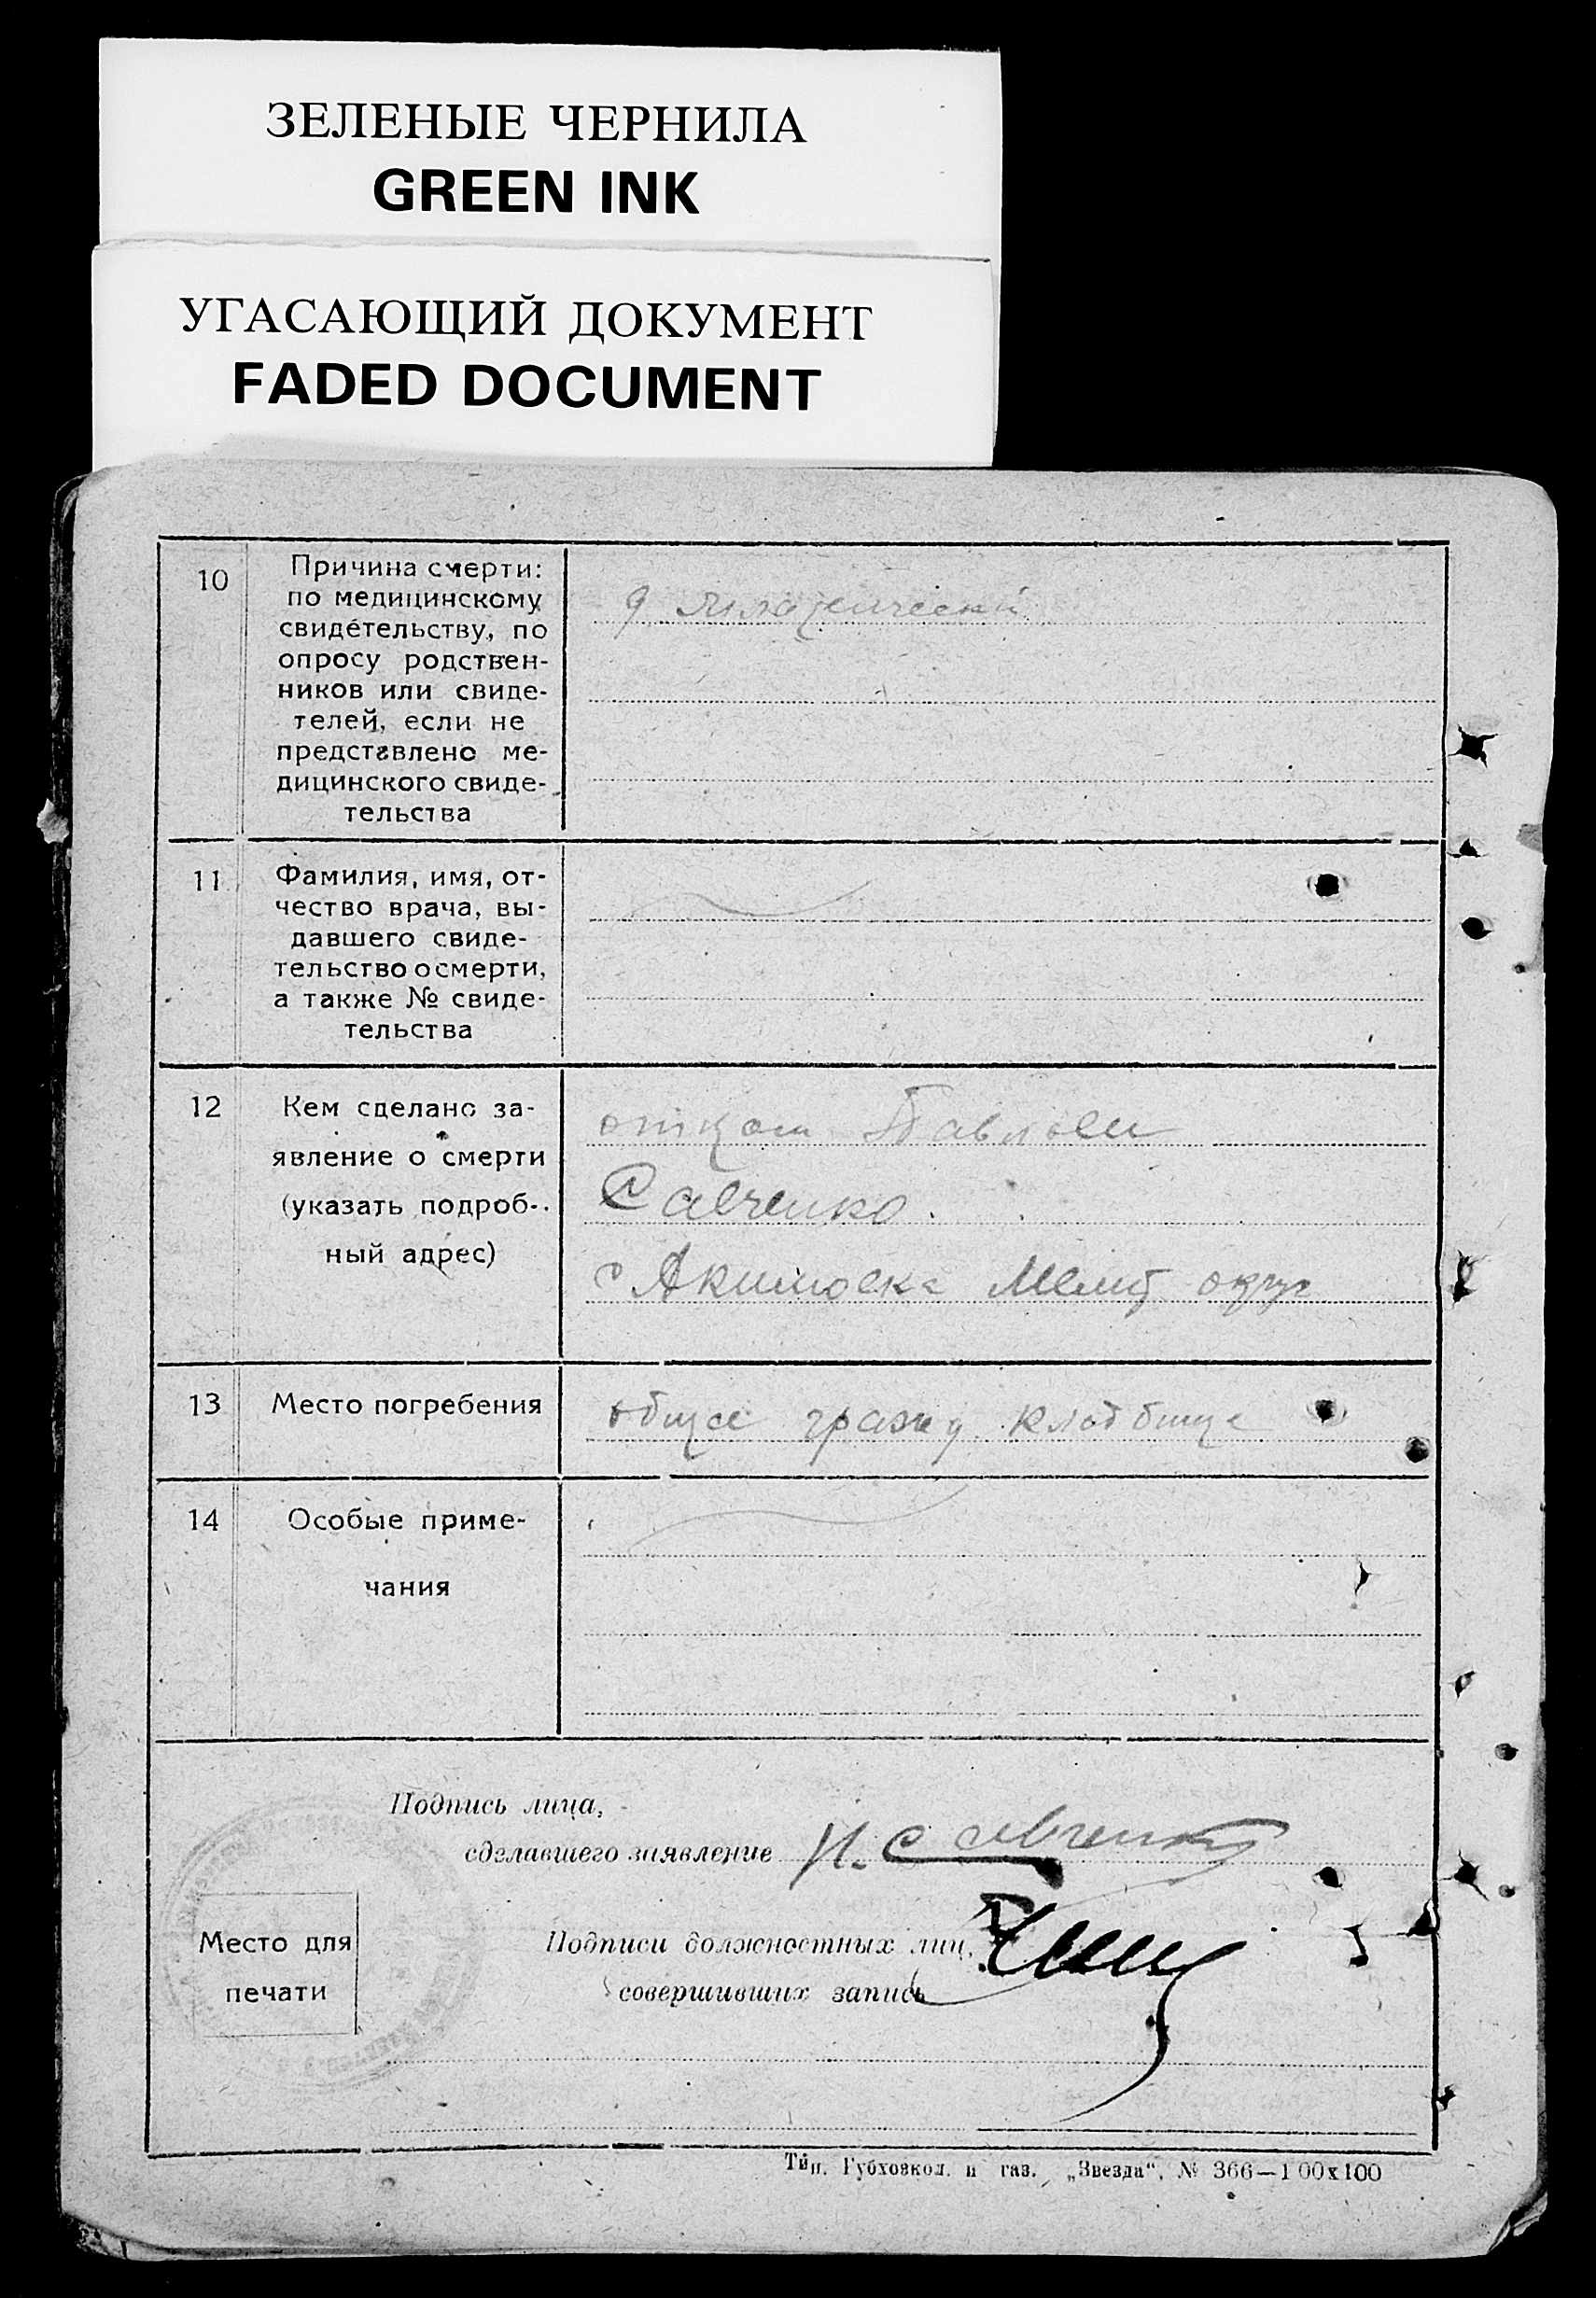 ЗЕЛЕНЫЕ ЧЕРНИЛА
GREEN INK
УГАСАЮЩИЙ ДОКУМЕНТ
FADED DOCUMENT
10
Причина смерти:
по медицинскому
свидетельству, по
опросу родствен-
ников или свиде-
телей, если не
представлено ме-
дицинского свиде-
тельства
младенческий
11
Фамилия, имя, от-
чество врача, вы-
давшего свиде-
тельство о смерти,
а также № свиде-
тельства
12
Кем сделано за-
явление о смерти
(указать подроб-
ный адрес)
отцом Павлом
Савченко.
с Акимовка Мелит округ
13
Место погребения
общее гражд. кладбище
14
Особые приме-
чания
Подпись лица,
сделавшего заявление
Савченко
Место для
печати
Подписи должностных лиц,
совершивших запись
Тип. Губхозкол. и газ. „Звезда“, № 366—100х100